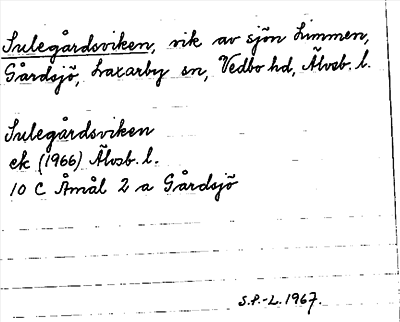 Sulegårdsviken, vik av sjön Limmen,
Gårdsjö, Laxarby sn, Vedbo hd, Älvsb. l.
Sulegårdsviken
ek (1966) Älvsb. l.
10 C Åmål 2 a Gårdsjö
S.P.-L. 1967.